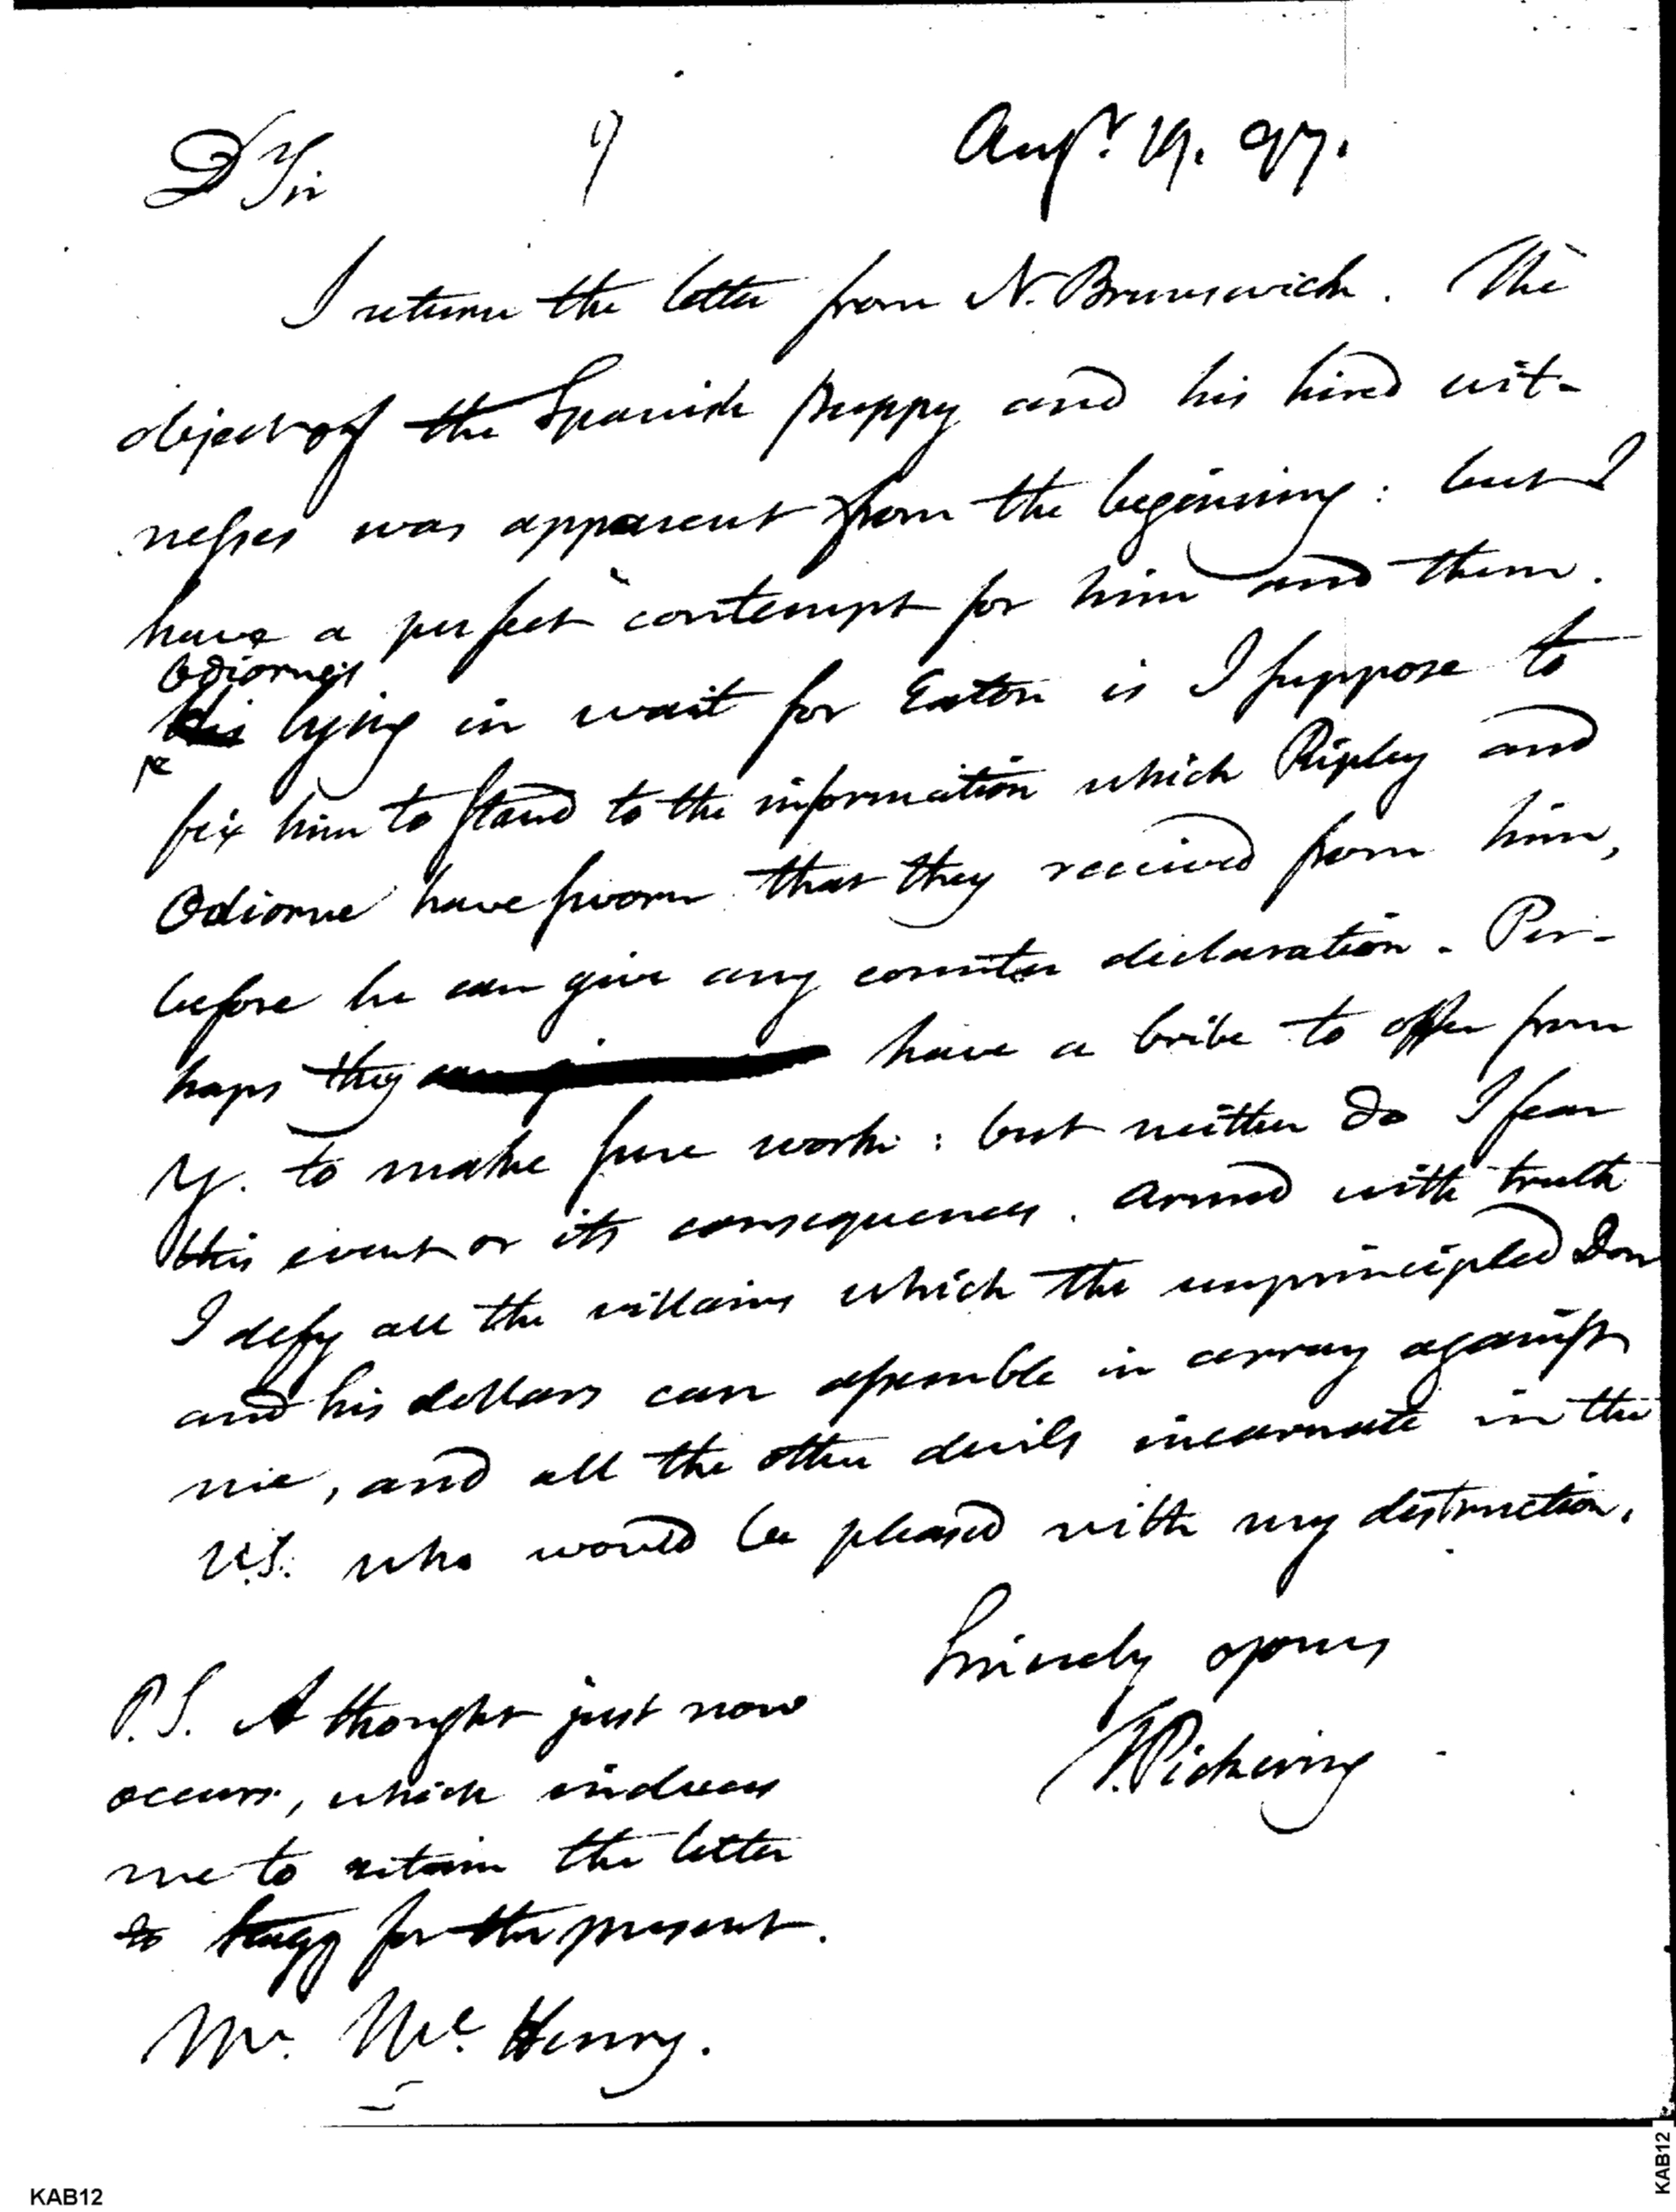 Dr Sir
Augt. 19. 97.
I return the letter from N. Brunswick. The
object of the Spanish puppy and his hired wit-
nesses was apparent from the beginning: but I
have a perfect contempt for him and them.
Odiorne's
his lying in wait for Eaton is I suppose to
fix him to stand to the information which Ripley and
Odiorne have sworn that they received from him,
before he can give any counter declaration. Per-
haps they have a bribe to offer from
Y. to make sure work: but neither do I fear
this event or its consequences. Armed with truth
I defy all the villains which the unprincipled Don
and his dollars can assemble in array against
me, and all the other devils incarnate in the
U.S. who would be pleased with my destruction.
Sincerely yours
T. Pickering
P.S. A thought just now
occurs, which induces
me to retain the letter
for the present.
Mr. McHenry.
KAB12
KAB12